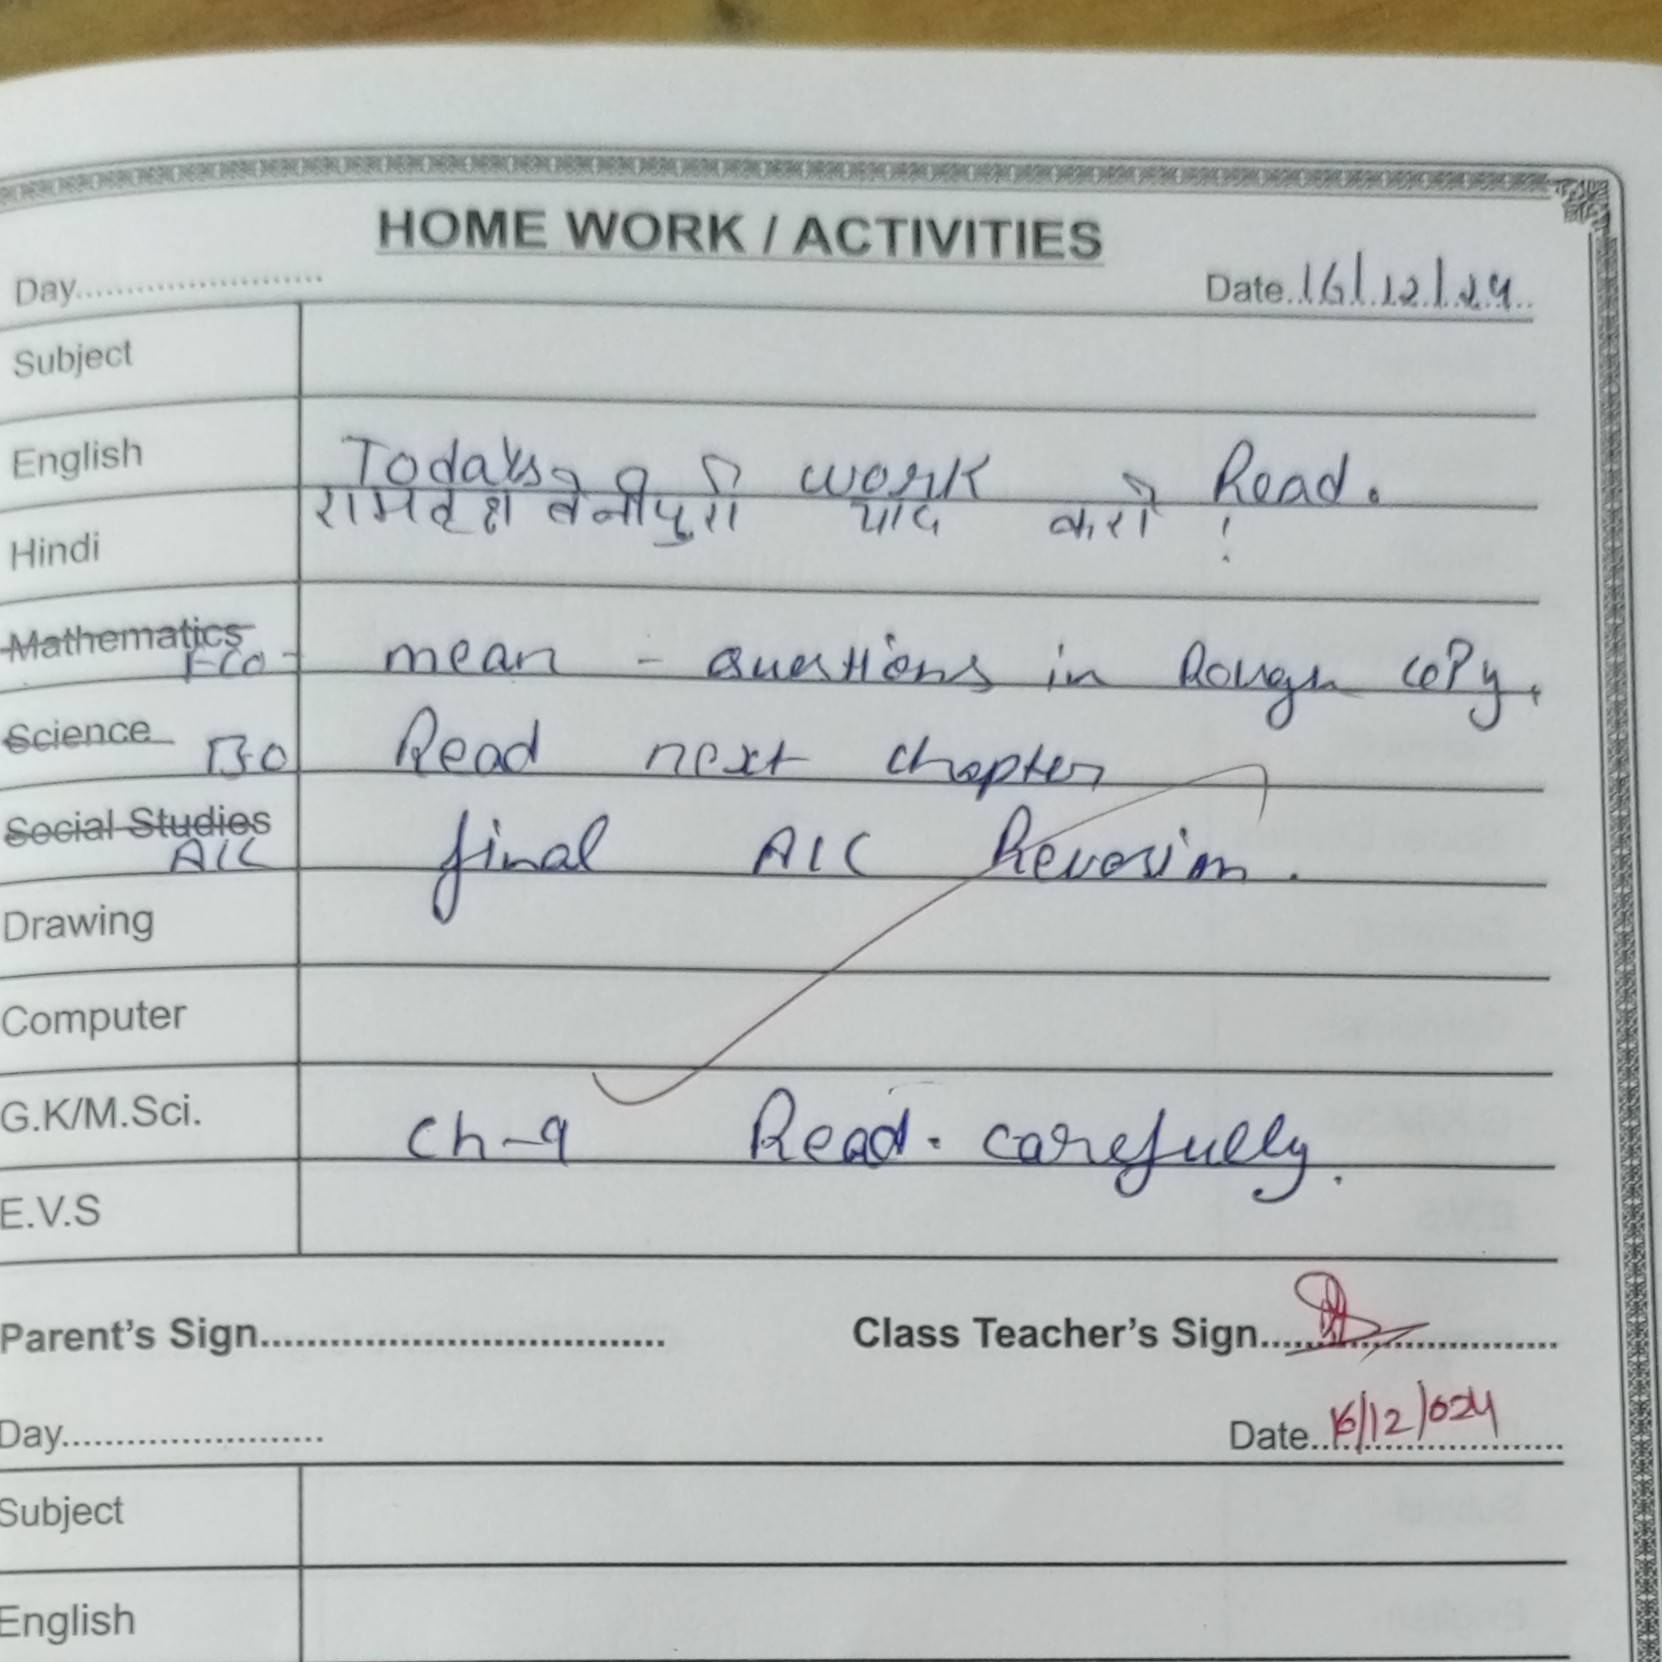 HOME WORK / ACTIVITIES
Day........................ Date..16/12/24..
Subject
English Today's work Read.
Hindi रामवृक्ष बेनीपुरी याद करो !
Mathematics Eco - mean - questions in Rough copy.
Science B.O Read next chapter
Social Studies A/C final A/C Revesion.
Drawing
Computer
G.K/M.Sci. Ch-9 Read. carefully.
E.V.S
Parent's Sign.................................. Class Teacher's Sign.........................
Day........................ Date..16/12/024
Subject
English